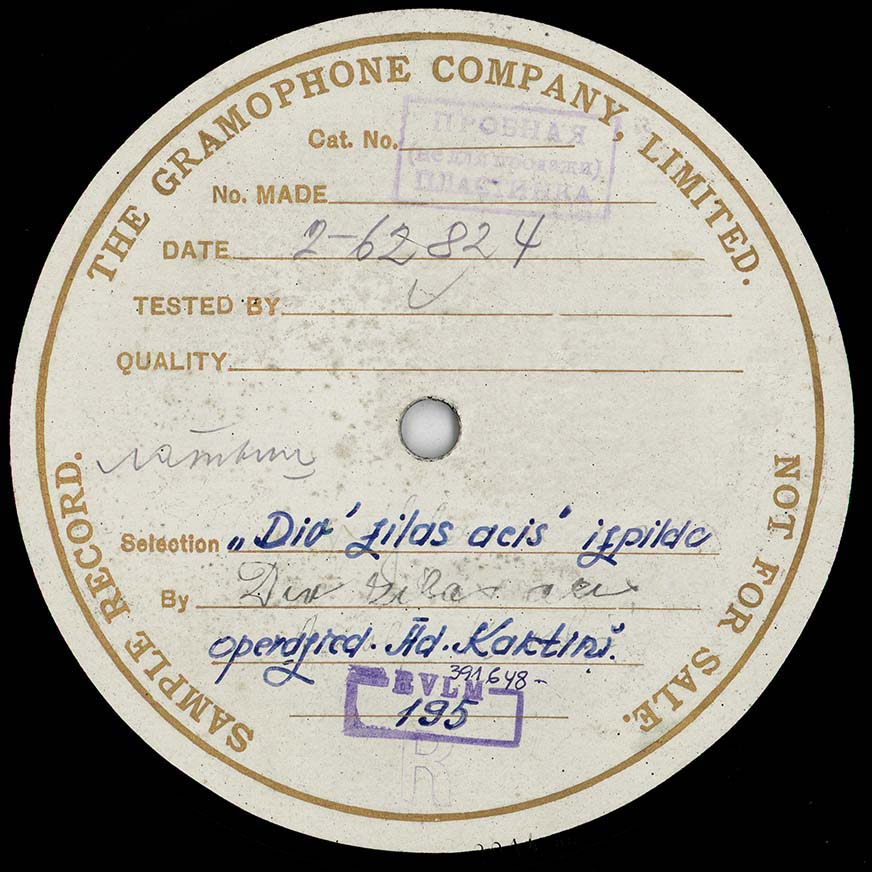 THE GRAMOPHONE COMPANY, LIMITED.
Cat. No.
ПРОБНАЯ
(не для продажи)
ПЛАСТИНКА
No. MADE
DATE 2-62824
TESTED BY
QUALITY
SAMPLE RECORD.
NOT FOR SALE.
Selection „Div' zilas acis' izpilda
By Div zilas acis
operdzied. Ād. Kaktiņš.
RVLM 391648-
195
R